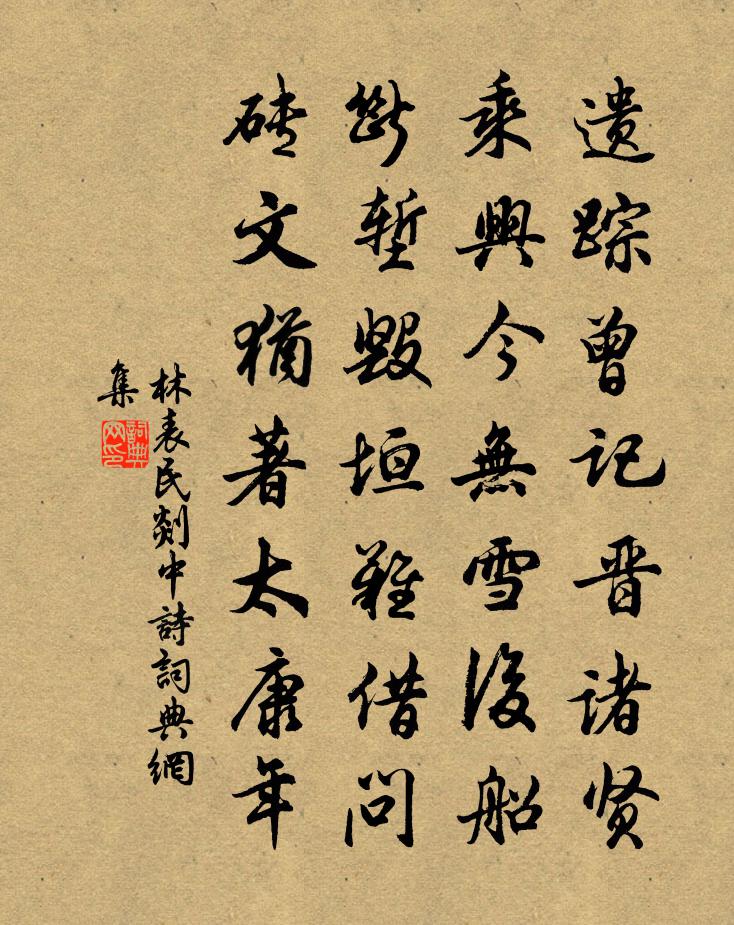 遗踪曾记晋诸贤
乘興今無雪後船
斷塹毀垣難借問
磚文猶著太康年
林表民剡中詩詞典網
集
詞典
网印